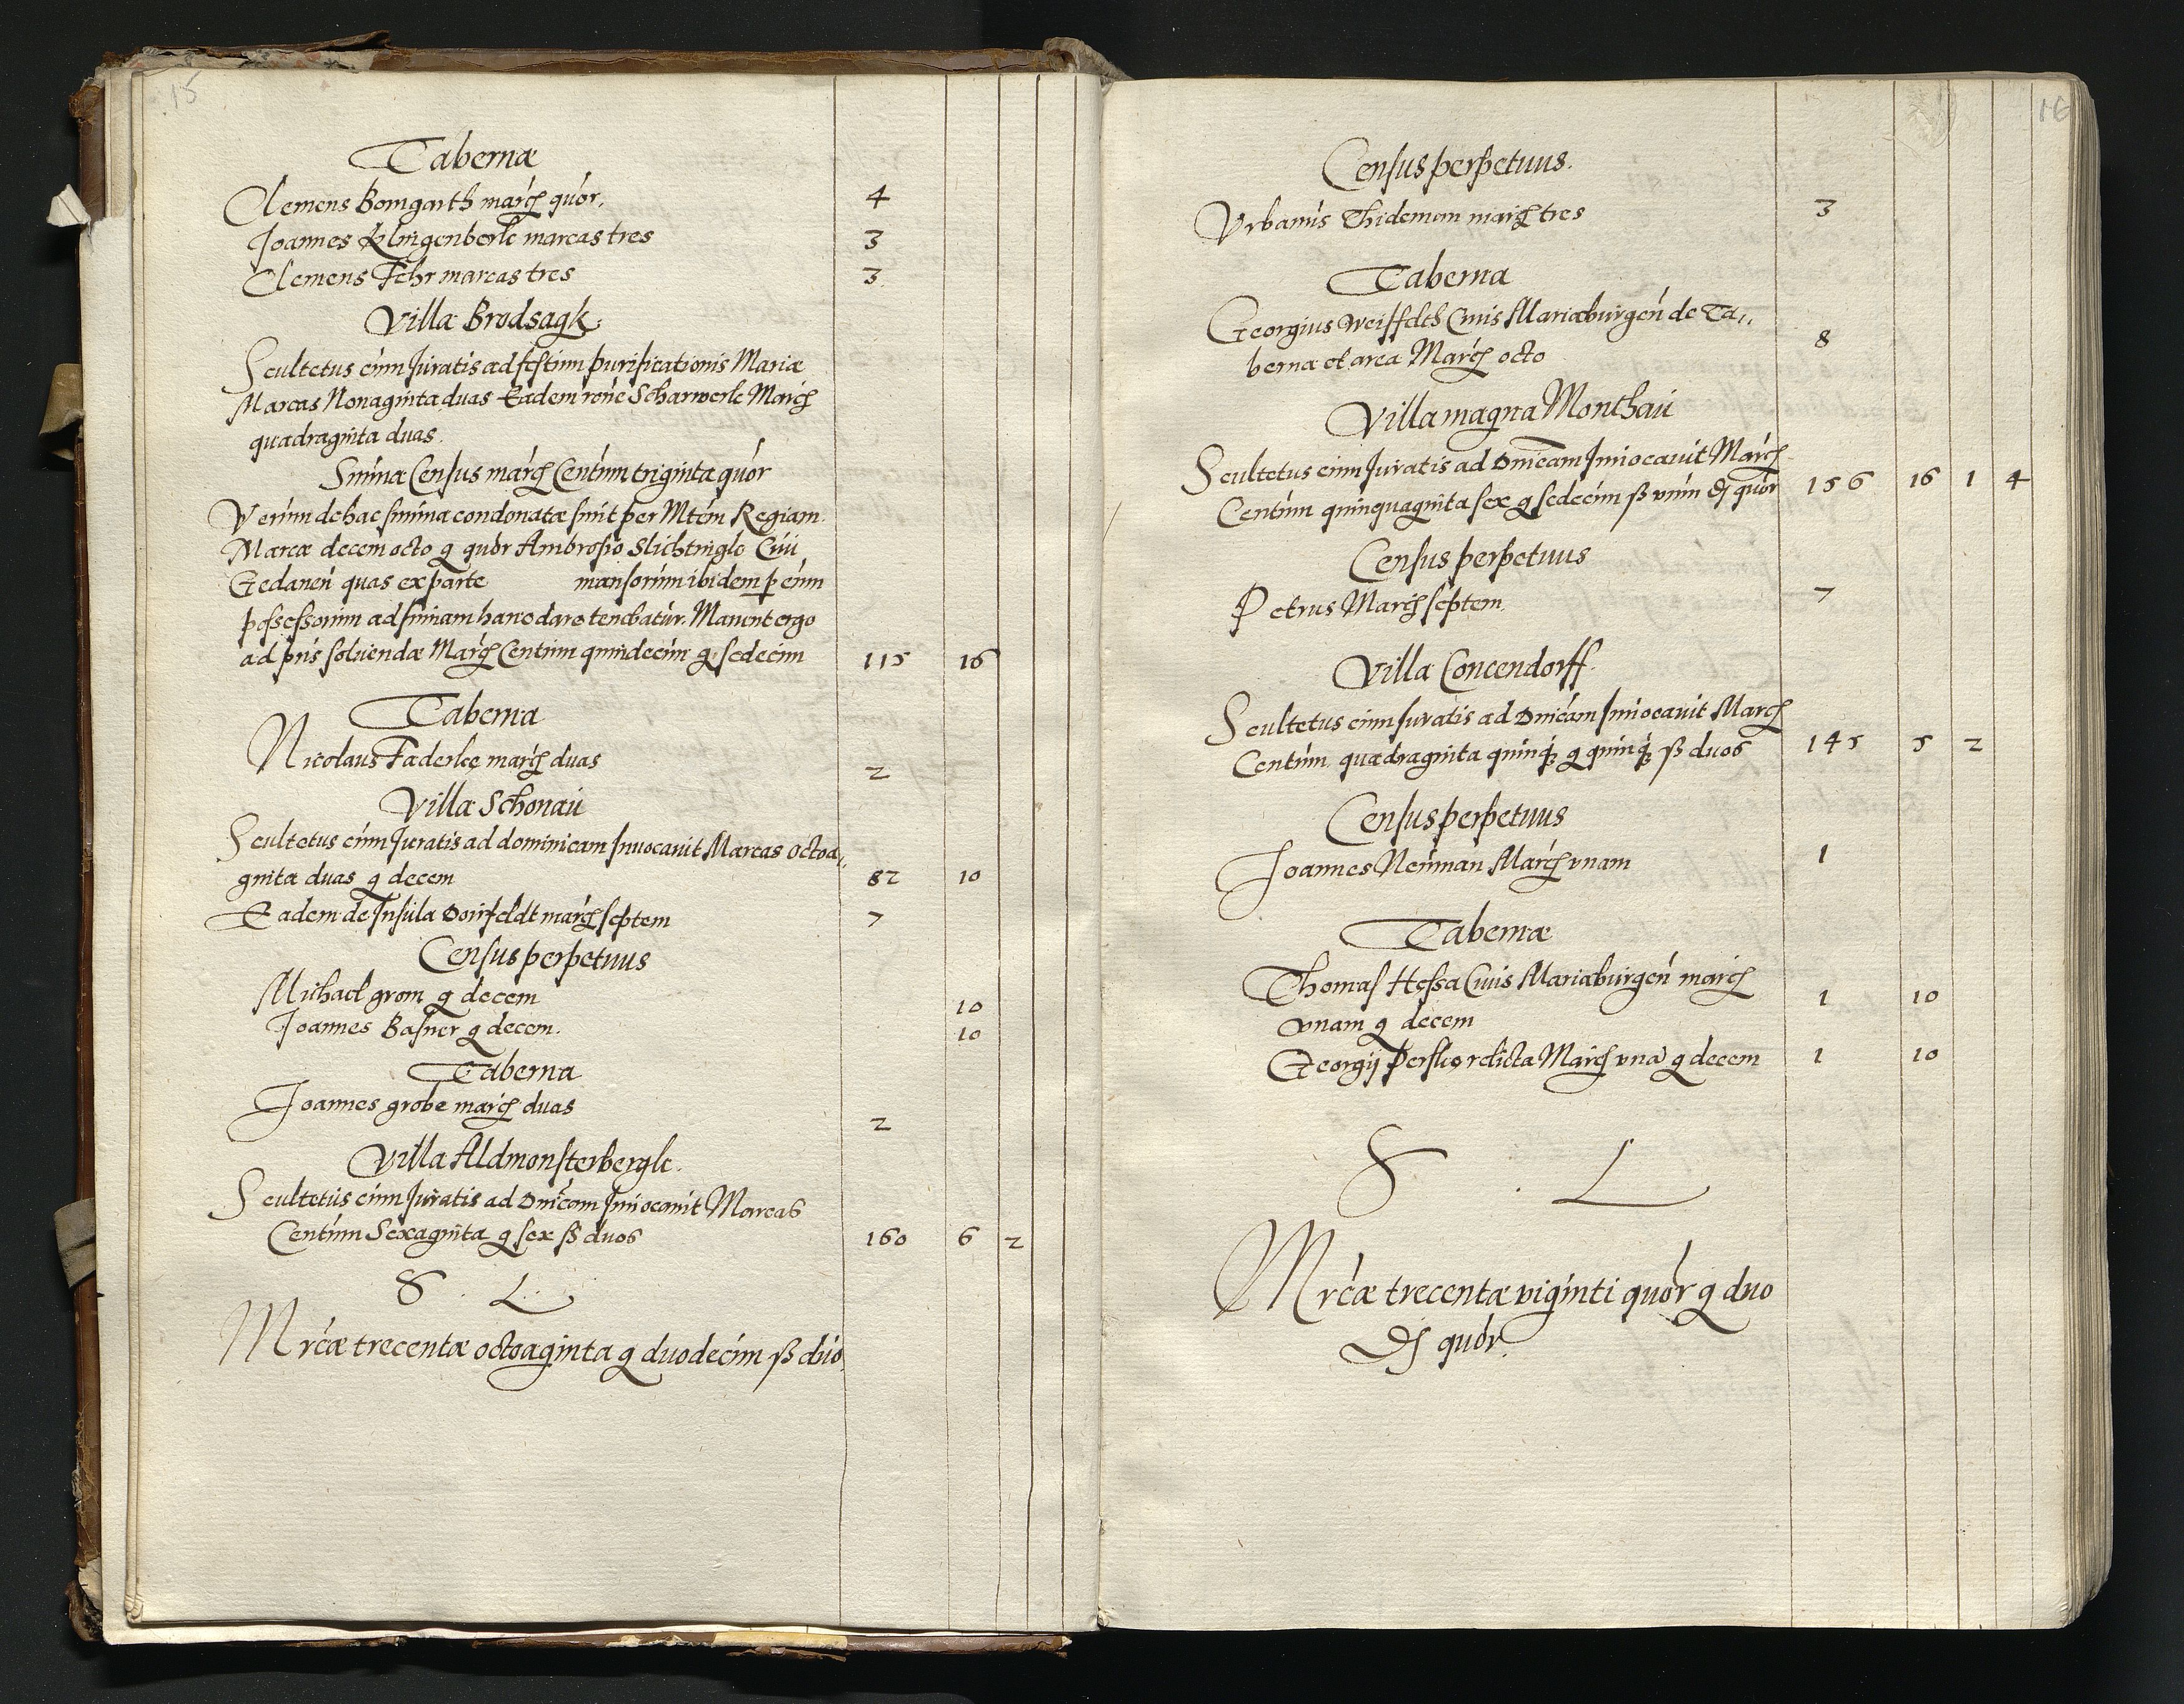 15
Tabernæ
Clemens Bomgarth march quor. 4
Joannes Klingenberk marcas tres 3
Clemens Fehr marcas tres 3
Villa Brodsagk
Scultetus cum Juratis ad festum purificationis Mariæ
Marcas Nonaginta duas Eadem rone Scharwerk March
quadraginta duas.
Suma Census march Centum triginta quor
Verum de hac suma condonatæ sunt per Mtem Regiam
Marcæ decem octo g quor Ambrosio Slichtingk Ciui
Gedaneń quas ex parte mansorum ibidem p eum
possessorum ad sumam hanc dare tenebatur. Manent ergo
ad pns soluendæ March Centum quindecim g sedecim 115 16
Taberna
Nicolaus Faderke march duas 2
Villa Schonaú
Scultetus cum Juratis ad dominicam Inuocauit Marcas octoa,,
ginta duas g decem 82 10
Eadem de Insula Dorifeldt march septem 7
Census perpetuus
Michael grom g decem 10
Joannes Basner g decem. 10
Taberna
Joannes grobe march duas 2
Villa Aldmonsterbergk.
Scultetus cum Juratis ad Dnicam Inuocauit Marcas
Centum Sexaginta g sex ß duos 160 6 2
S . L .
Mrcæ trecentæ octoaginta g duodecim ß duo
16
Census perpetuus.
Vrbanus Thideman march tres 3
Taberna
Georgius Weiffelth Ciuis Mariæburgeń de Ta,,
berna et area March octo 8
Villa magna Monthaú
Scultetus cum Juratis ad Dnicam Inuocauit March
Centum quinquaginta sex g sedecim ß vnum ₰ quor 156 16 1 4
Census perpetuus
Petrus March septem 7
Villa Concendorff.
Scultetus cum Juratis ad Dnicam Inuocauit March
Centum quadraginta quinq g quinq ß duos 145 5 2
Census perpetuus
Joannes Neuman March vnam 1
Tabernæ
Thomas Hessa Ciuis Mariæburgeń march
vnam g decem 1 10
Georgij relicta March vnā g decem 1 10
S . L
Mrcæ trecentæ viginti quor g duo
₰ quor.